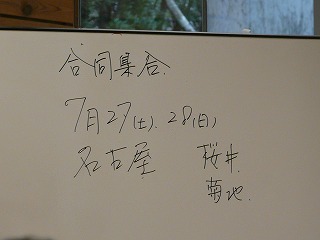 合同集合.
7月27(土).28(日)
名古屋 桜井.
菊地.